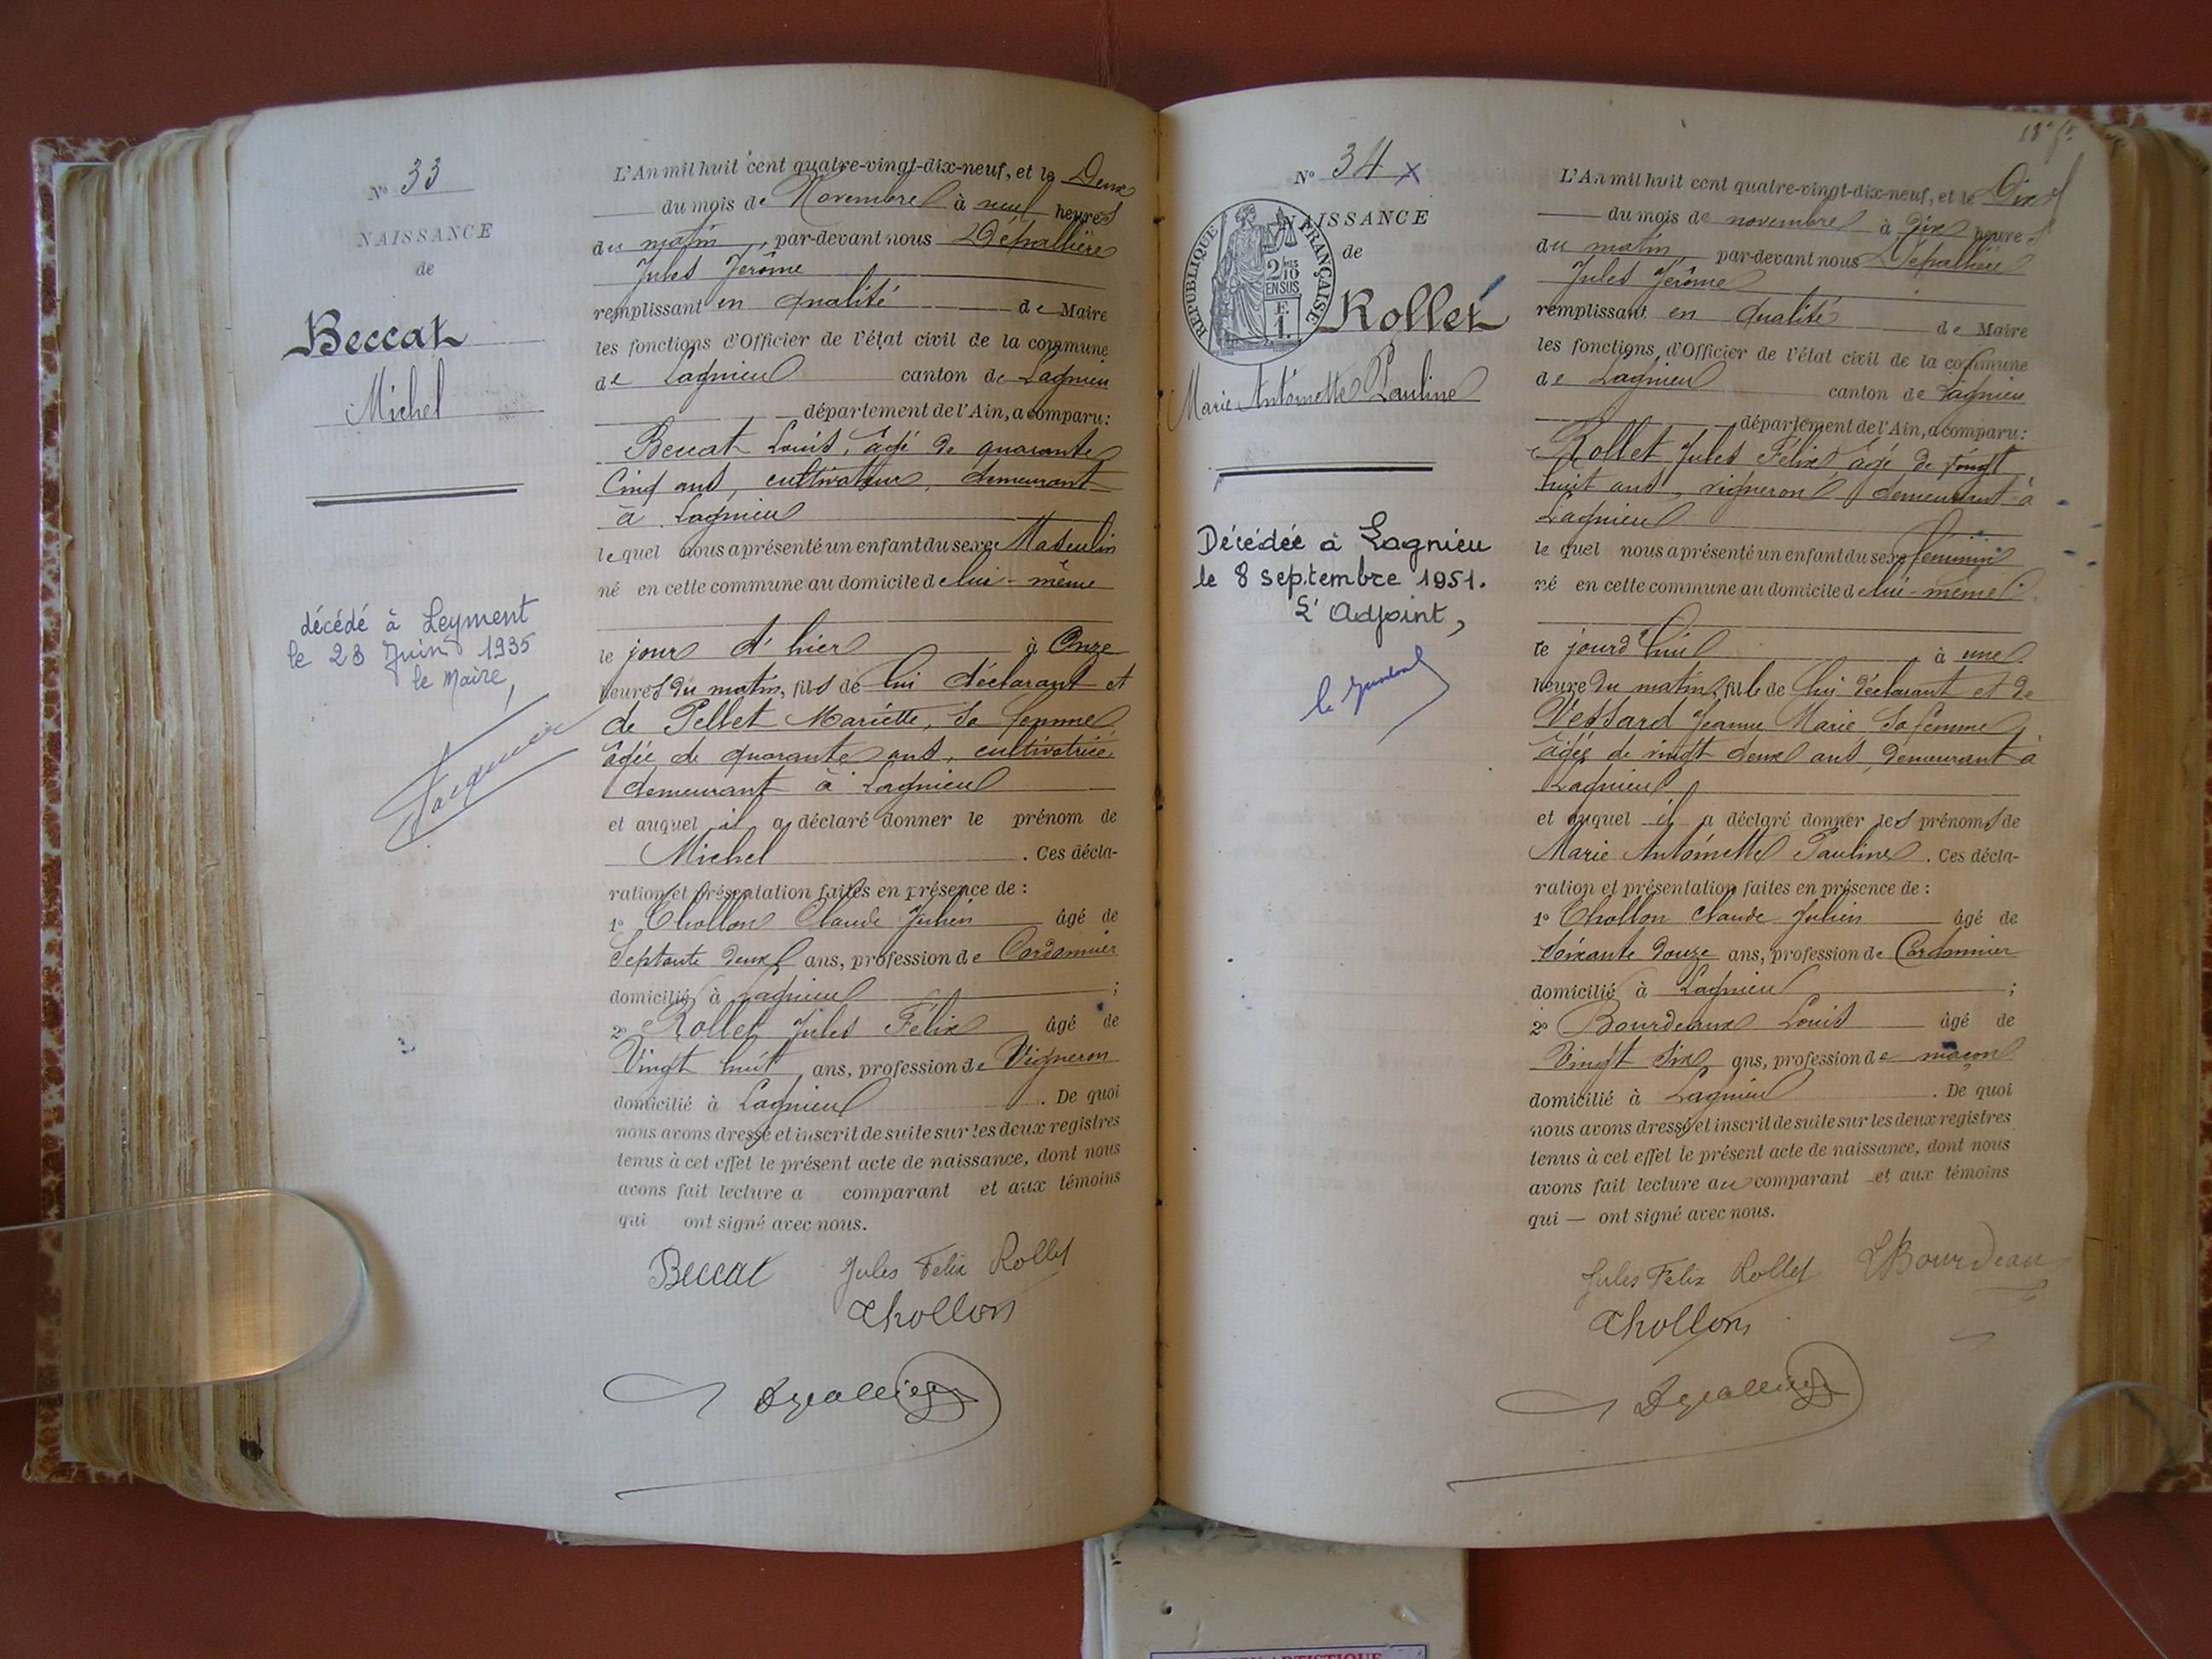 N° 33
NAISSANCE
de
Beccat
Michel
décédé à Leyment
le 23 Juin 1935
le Maire,
L'An mil huit cent quatre-vingt-dix-neuf, et le Deux
du mois de Novembre à neuf heures
du matin, par-devant nous Dépallière
Jules Jérôme
remplissant en qualité de Maire
les fonctions d'Officier de l'état civil de la commune
de Lagnieu canton de Lagnieu
département de l'Ain, a comparu:
Beccat Louis, âgé de quarante
Cinq ans, cultivateur, demeurant
à Lagnieu
lequel nous a présenté un enfant du sexe Masculin
né en cette commune au domicile de lui-même
le jour d'hier à Onze
heures du matin, fils de lui déclarant et
de Pellet Mariette, sa femme
âgée de quarante ans, cultivatrice,
demeurant à Lagnieu
et auquel il a déclaré donner le prénom de
Michel . Ces décla-
ration et présentation faites en présence de :
1° Chollon Claude Julien âgé de
Septante deux ans, profession de Cordonnier
domicilié à Lagnieu ;
2° Rollet Jules Félix âgé de
Vingt huit ans, profession de Vigneron
domicilié à Lagnieu . De quoi
nous avons dressé et inscrit de suite sur les deux registres
tenus à cet effet le présent acte de naissance, dont nous
avons fait lecture a comparant et aux témoins
qui ont signé avec nous.
Beccat Jules Felix Rollet
Chollon
N° 34 x
NAISSANCE
de
REPUBLIQUE FRANÇAISE
2/10
EN SUS
Rollet
Marie Antoinette Pauline
Décédée à Lagnieu
le 8 septembre 1951.
L'Adjoint,
L'An mil huit cent quatre-vingt-dix-neuf, et le Dix
du mois de novembre à dix heures
du matin par-devant nous Dépallière
Jules Jérôme
remplissant en qualité de Maire
les fonctions d'Officier de l'état civil de la commune
de Lagnieu canton de Lagnieu
département de l'Ain, a comparu:
Rollet Jules Félix âgé de vingt
huit ans, vigneron demeurant à
Lagnieu
le quel nous a présenté un enfant du sexe féminin
né en cette commune au domicile de lui-même
ce jourd'hui à une
heure du matin, fille de lui déclarant et de
Vessard Jeanne Marie sa femme
âgée de vingt deux ans, demeurant à
Lagnieu
et auquel il a déclaré donner les prénoms de
Marie Antoinette Pauline . Ces décla-
ration et présentation faites en présence de :
1° Chollon Claude Julien âgé de
soixante douze ans, profession de Cordonnier
domicilié à Lagnieu ;
2° Bourdeaux Louis âgé de
Vingt six ans, profession de maçon
domicilié à Lagnieu . De quoi
nous avons dressé et inscrit de suite sur les deux registres
tenus à cet effet le présent acte de naissance, dont nous
avons fait lecture au comparant et aux témoins
qui — ont signé avec nous.
Jules Felix Rollet LBourdeau
Chollon